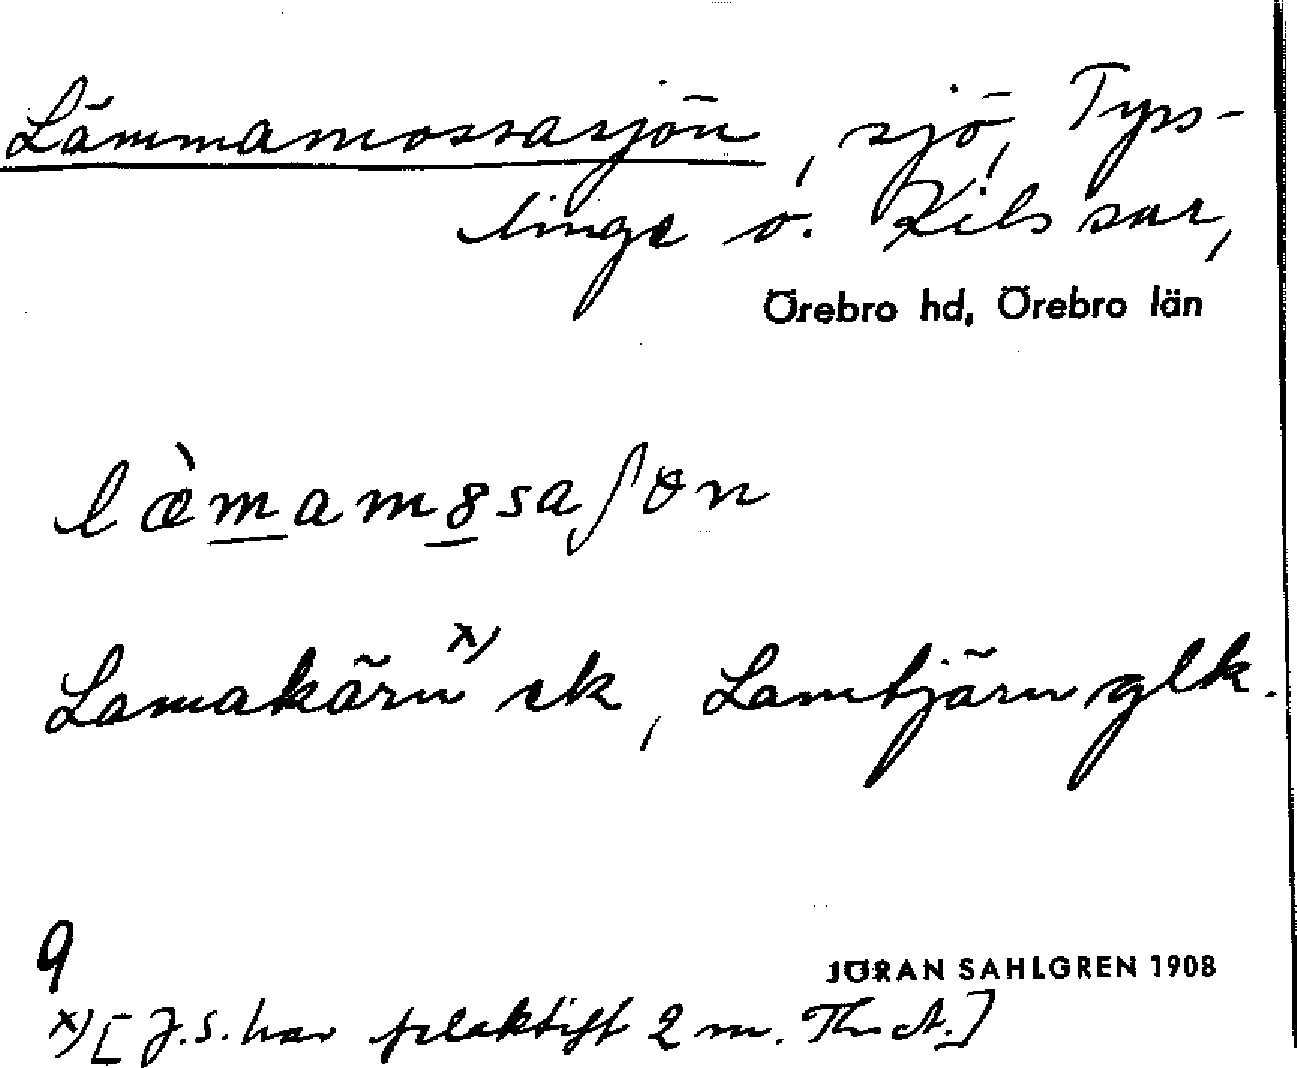 Lämmamossasjön, sjö, Tyss-
linge o. Kils snr,
Örebro hd, Örebro län
læ̀mam8saʃøn
Lamakärn x) ek, Lamtjärn glk.
9
JÖRAN SAHLGREN 1908
x) [J.S. har felaktigt 2 m. Th. A.]